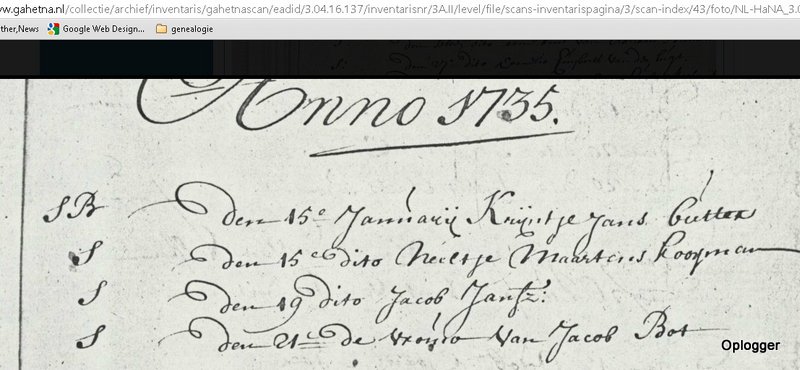 ww.gahetna.nl/collectie/archief/inventaris/gahetnascan/eadid/3.04.16.137/inventarisnr/3A.II/level/file/scans-inventarispagina/3/scan-index/43/foto/NL-HaNA_3.0
ther,News Google Web Design... genealogie
Anno 1735.
SB den 15e Januarij Krijntje Jans
S den 15e dito Neeltje Maartens Kooijman
S den 19 dito Jacob Jansz:
S den 21e de vrouw van Jacob Bot
Oplogger